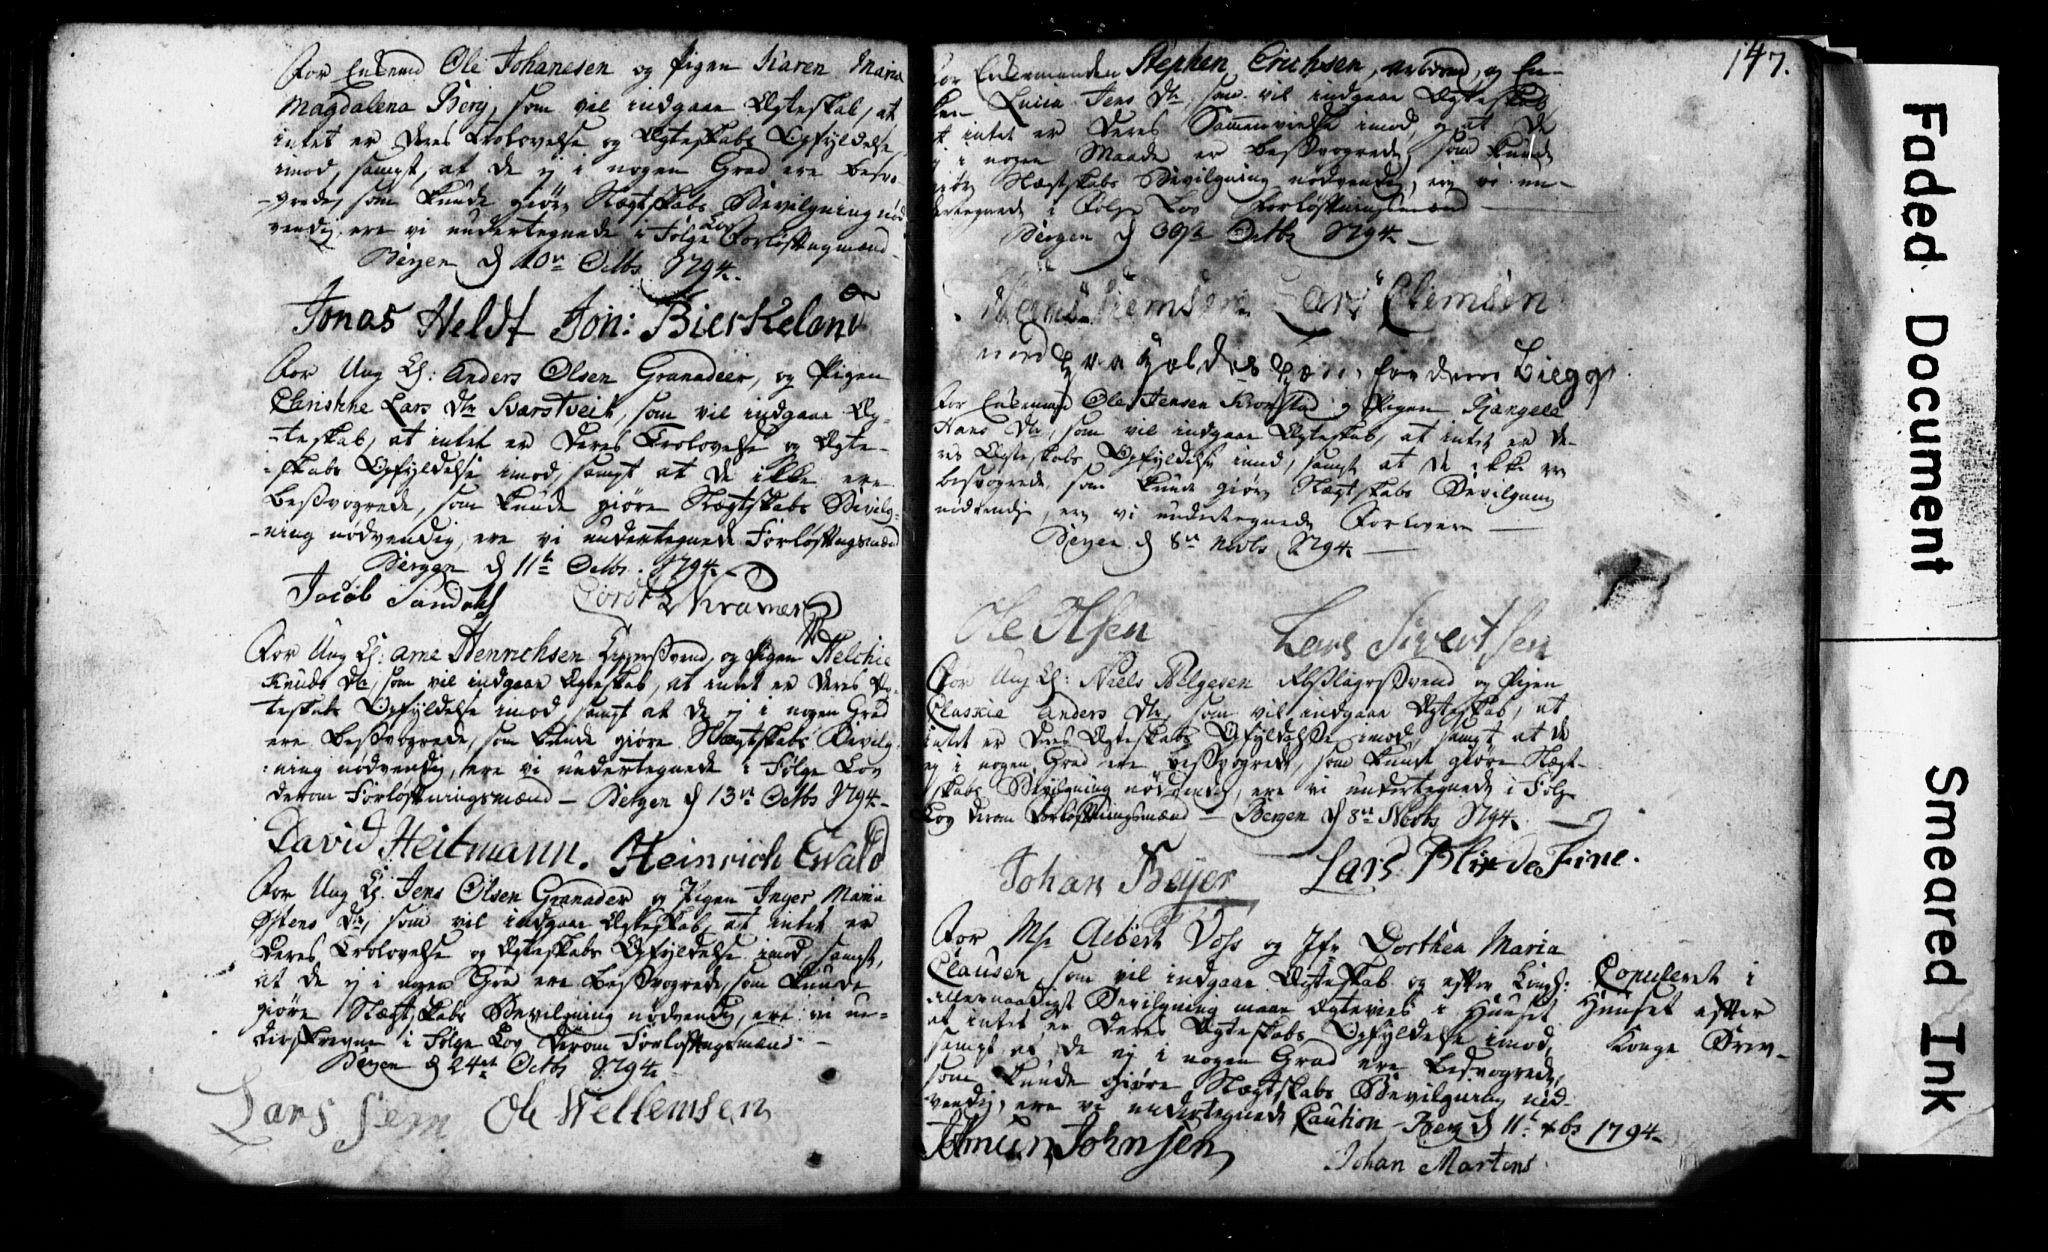 For Enkemd Ole Johanesen og Pigen Karen Maria
Magdalena Berg, som vil indgaae Ægteskab, at
intet er Deres Trolovelse og Ægteskabs Opfyldelse
imod, sampt, at de ej i nogen Grad ere besvo-
-grede, som kunde giøre Kægtskabs Bevilgning nød
vendig ere vi undertegnede i Følge Lov Forløftngmænd
Bergen d 10de Octbr 1794.
Jonas Heldt Jon: Bierkeland
For Ung K: Anders Olsen Granadeer, og Pigen
Christine Lars Dtr Svarstveit, som vil indgaae Æg-
-teskab, at intet er Deres Trolovelse og Ægte-
-skabs Opfyldelse imod, sampt at de ikke ere
beßvogrede, som kunde giøre Kægtskabs Bevilg-
-ning nødvendig, ere vi undertegnede Forløftngsmænd
Bergen d 11te Octbr. 1794.
Jacob Sandahl Kramer
For Ung K: Arne Henrichsen og Pigen Helchie
Knuds Dtr, som vil indgaae Ægteskab, at intet er Deres Æg-
teskabs Opfyldelse imod, sampt at de ej i nogen Grad
ere beßvogrede, som kunde giøre Kægtskabs Bevilg-
-ning nødvendig, ere vi undertegnede i Følge Lov
derom Forløftningsmænd - Bergen d 13de Octbr 1794.
David Heitmann. Heinrich Ewald
For Ung K. Jens Olsen Granadeer og Pigen Inger Maria
Østens Dtr, som vil indgaae Ægteskab, at intet er
Deres Trolovelse og Ægteskabs Opfyldelse imod, sampt,
at de ej i nogen Grd ere beßvogrede, som kunde
giøre Kægtskabs Bevilgning nødvendig, ere vi un-
derskrevne i Følge Lov derom Forløftngsmænd.
Bergen d 24de Octbr 1794
Lars Ole Wellemsen
147.
For Enkemanden Stephen Erichsen, og En-
Lucia Jens Dtr som vil indgaae Ægteskab
at intet er Deres Sammenvielse imod, og at de
ej i nogen Maade er beßvogrede, som kunde
giøre Kægtskabs Bevilgning nødvendig, ere vi un-
dertegnede i Følge Lov Forløftningsmænd
Bergen d 30te Octbr 1794.
Lars Clemsen
med Pen for dem Begge
For Enkemand Ole Jensen Kronstad og Pigen Rangele
Hans Dtr, som vil indgaae Ægteskab, at intet er De-
res Ægteskabs Opfyldelse imod, sampt at de ikke ere
besvogrede, som kunde giøre Kægtskabs Bevilgning
nødvendig, ere vi undertegnede Forlovere
Bergen d 8de Novbr 1794.
Ole Olsen Lars Sivertsen
For Ung K: Niels Helgesen og Pigen
Anders Dtr, som vil indgaae Ægteskab, at
intet er Deres Ægteskabs Opfyldelse imod, sampt at de
ej i nogen Grad ere beßvogrede, som kunde giøre Kægt-
skabs Bevilgning nødvendig, ere vi undertegnede i Følge
Lov derom Forløftningsmænd - Bergen d 8de Novbr 1794.
Johan Beijer Lars Blix de Fine.
For Mr Albert Voss og Jfr Dorthea Maria
Clausen, som vil indgaae Ægteskab og efter Kongl:
allernaadigst Bevilgning maae Ægtevies i Huuset
at intet er Deres Ægteskabs Opfyldelse imod,
sampt at de ej i nogen Grad ere Besvogrede,
som kunde giøre Kægtskabs Bevilgning nød-
vendig, ere vi undertegnede Caution - Berg d 11te xbr 1794.
Copuleret i
Huuset efter
Konge Brev-
Johnsen
Johan Martens
Faded Document
Smeared Ink